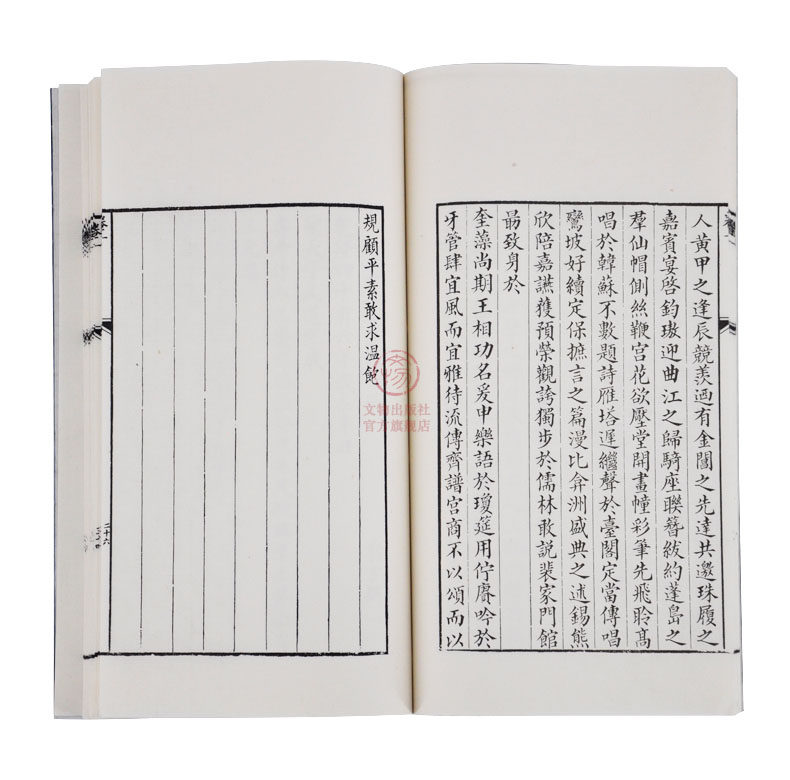 人黄甲之逢辰競羨迺有金閨之先達共邀珠履之
嘉賓宴啓鈞璈迎曲江之歸騎座聯簪紱約蓬島之
羣仙帽側絲鞭宫花欲壓堂開畫幢彩筆先飛聆髙
唱於韓蘇不數題詩雁塔遲繼聲於臺閣定當傳唱
鸞坡好續定保摭言之篇漫比弇洲盛典之述錫熊
欣陪嘉讌獲預榮觀誇獨步於儒林敢説裴家門館
勗致身於
奎藻尚期王相功名爰申樂語於瓊筵用佇賡吟於
牙管肆宜風而宜雅待流傳齊譜宫商不以頌而以
規顧平素敢求温飽
二十六
文物出版社
官方旗舰店